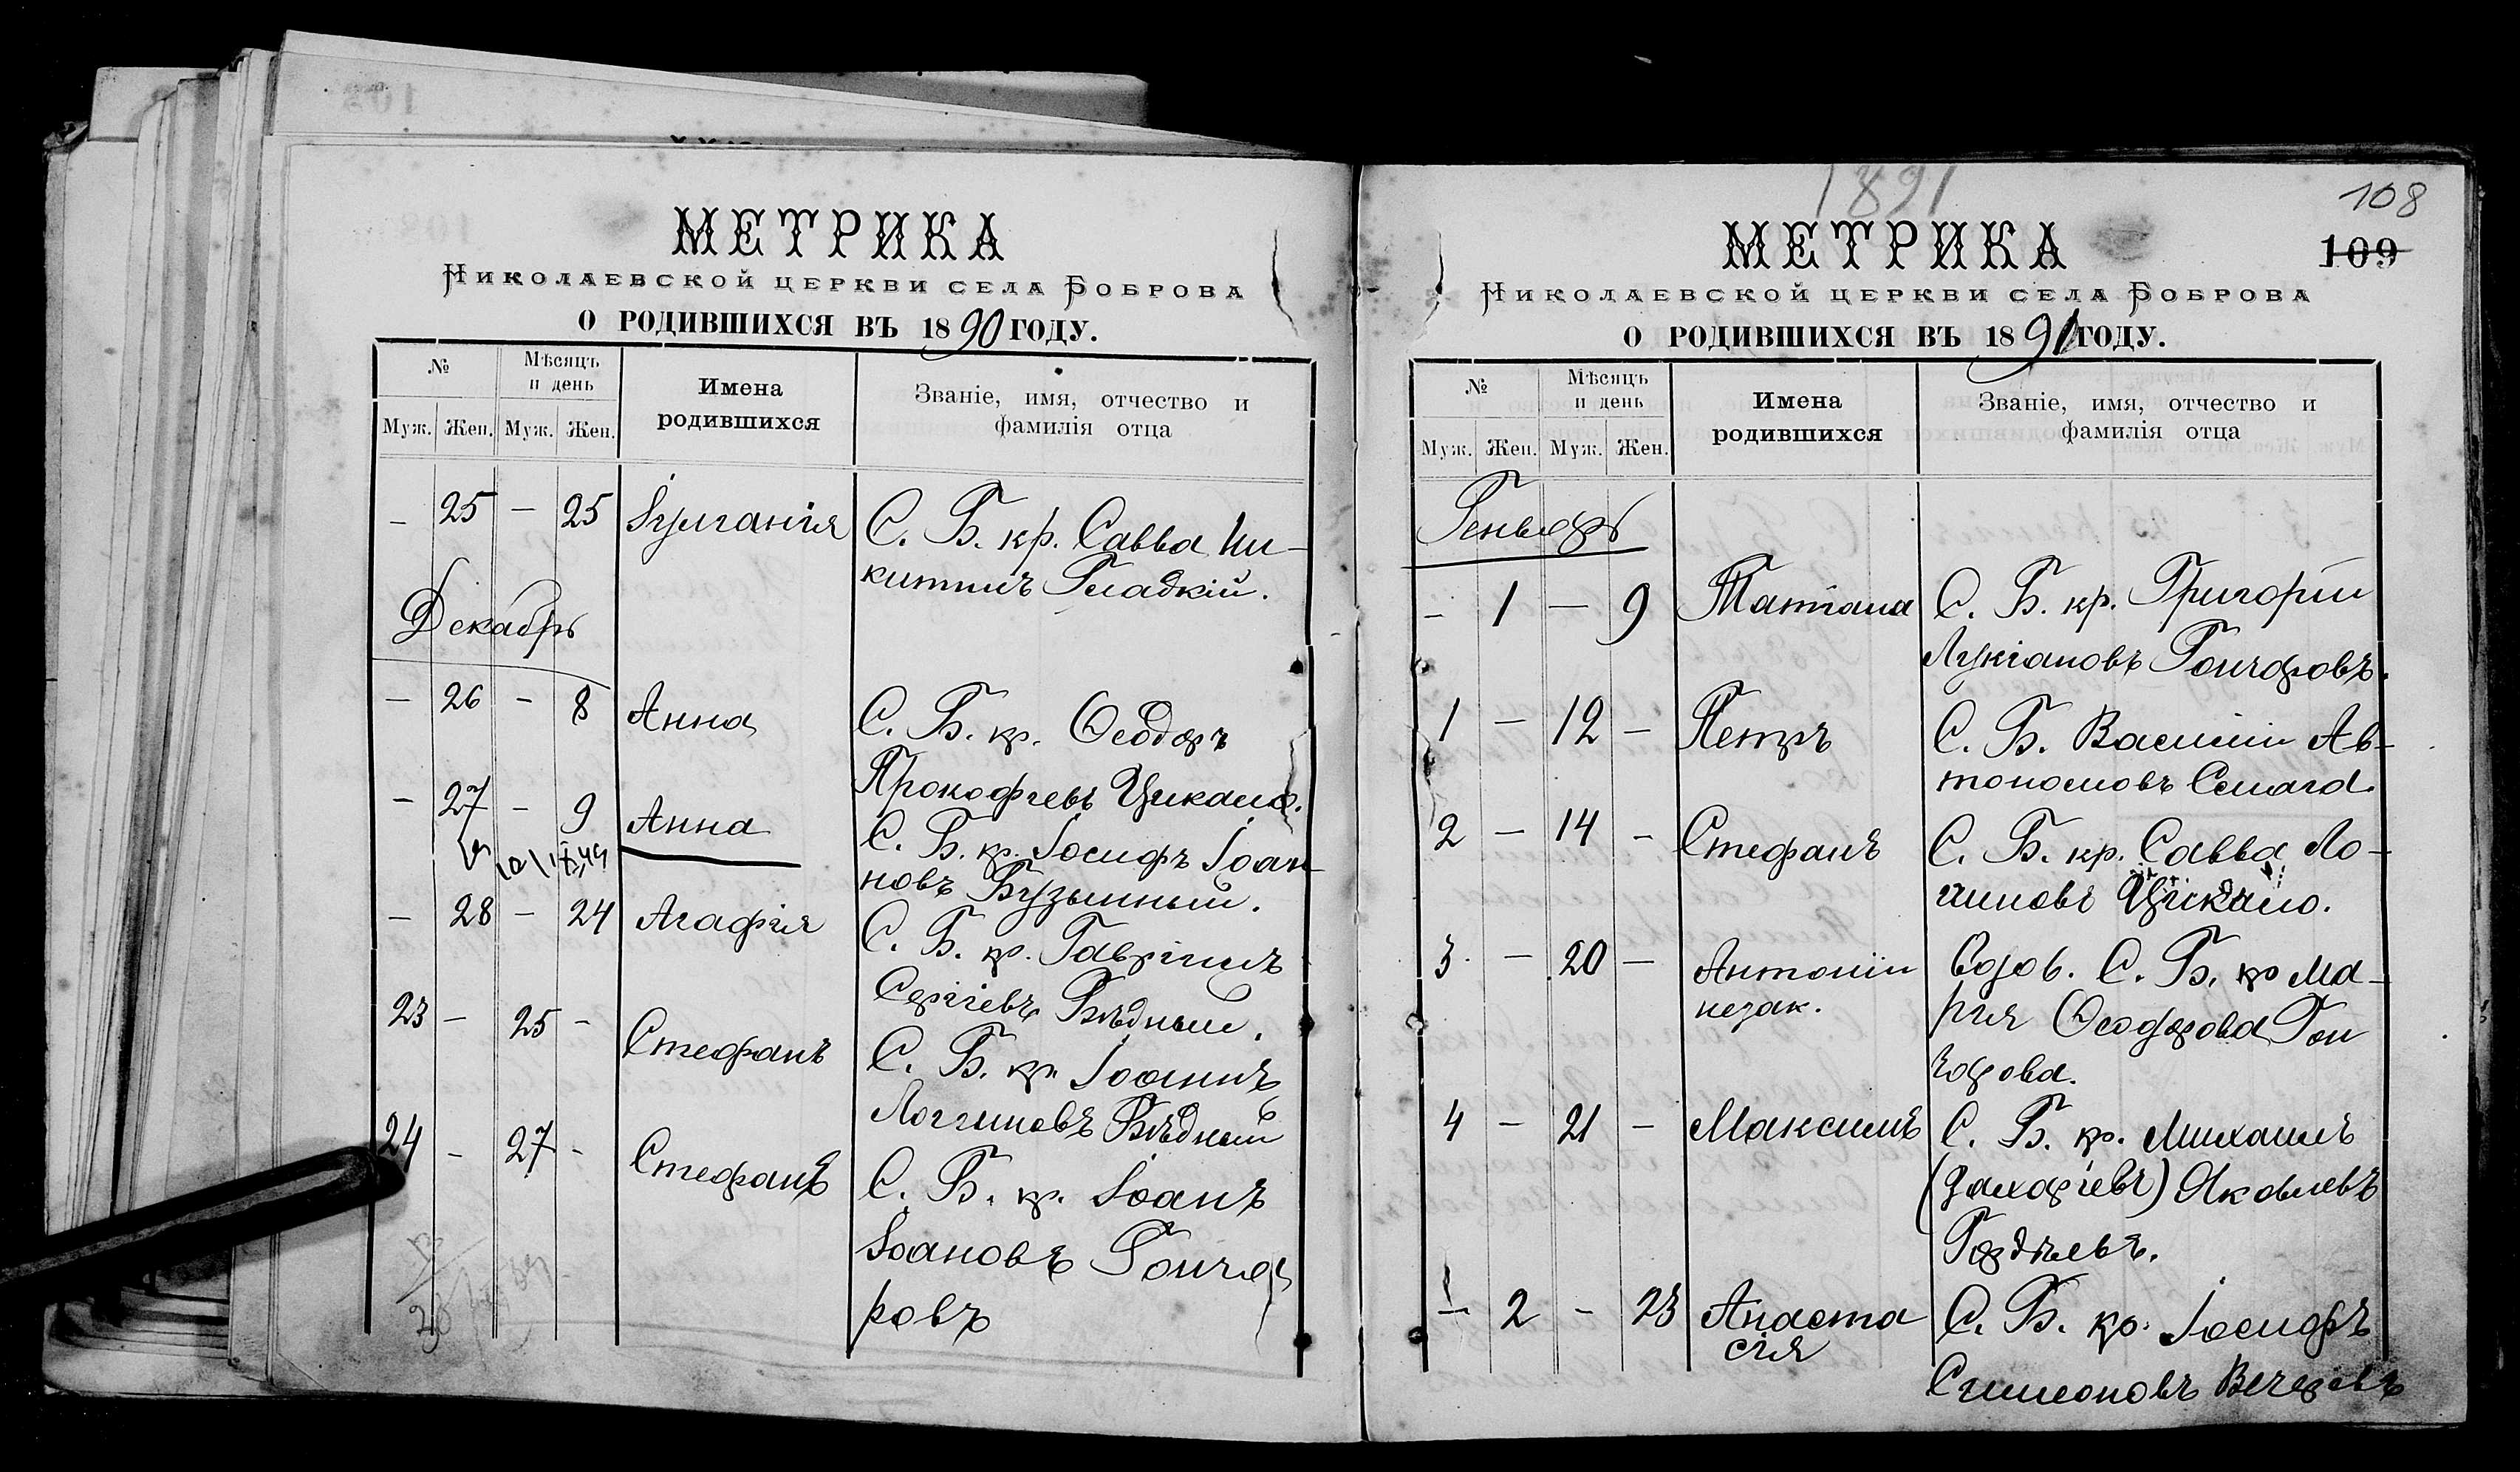 МЕТРИКА
НИКОЛАЕВСКОЙ ЦЕРКВИ СЕЛА БОБРОВА
О РОДИВШИХСЯ ВЪ 1890 ГОДУ.
№ Мѣсяцъ и день Имена родившихся Званіе, имя, отчество и фамилія отца
Муж. Жен. Муж. Жен.
- 25 - 25 Іуліанія С. Б. кр. Савва Ни-
китинъ Гладкій.
Декабрь
- 26 - 8 Анна С. Б. кр. Ѳеодоръ
Прокофіевъ Цикало.
- 27 - 9 Анна С. Б. кр. Іосифъ Іоан-
новъ Бузынный.
- 28 - 24 Агафія С. Б. кр. Гавріилъ
Сергіевъ Бѣдный.
23 - 25 - Стефанъ С. Б. кр. Іоаннъ
Логгиновъ Бѣдный
24 - 27 - Стефанъ С. Б. кр. Іоанъ
Іоановъ Гонча
ровъ
1891
108
109
МЕТРИКА
НИКОЛАЕВСКОЙ ЦЕРКВИ СЕЛА БОБРОВА
О РОДИВШИХСЯ ВЪ 1891 ГОДУ.
№ Мѣсяцъ и день Имена родившихся Званіе, имя, отчество и фамилія отца
Муж. Жен. Муж. Жен.
Геньварь
- 1 - 9 Татіана С. Б. кр. Григорій
Лукіановъ Гончаровъ.
1 - 12 - Петръ С. Б. Василій Ав-
тономовъ Смага.
2 - 14 - Стефанъ С. Б. кр. Савва Ло-
гиновъ Цикало.
3. - 20 - Антоній С. Б. кр Ма-
незак. рія Ѳеодорова Гон
чарова.
4 - 21 - Максимъ С. Б. кр. Михаилъ
(Захаріевъ) Яковлевъ
Гордѣевъ.
- 2 - 23 Анаста С. Б. кр. Іосифъ
сія
Симеоновъ